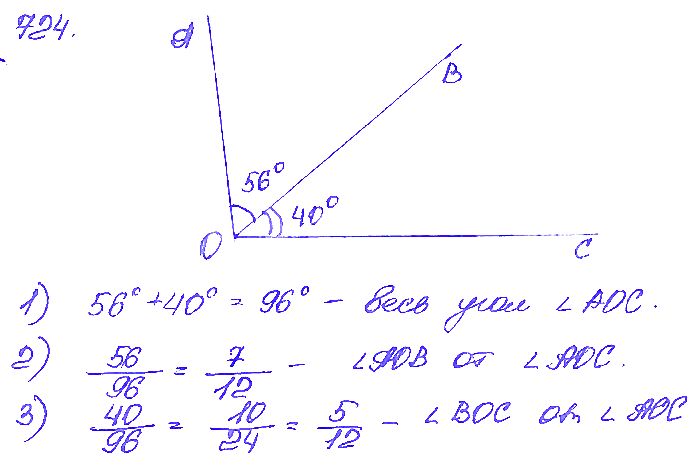 724.
A
B
56°
40°
O
C
1) 56° + 40° = 96° - весь угол ∠AOC.
2) 56/96 = 7/12 - ∠AOB от ∠AOC.
3) 40/96 = 10/24 = 5/12 - ∠BOC от ∠AOC